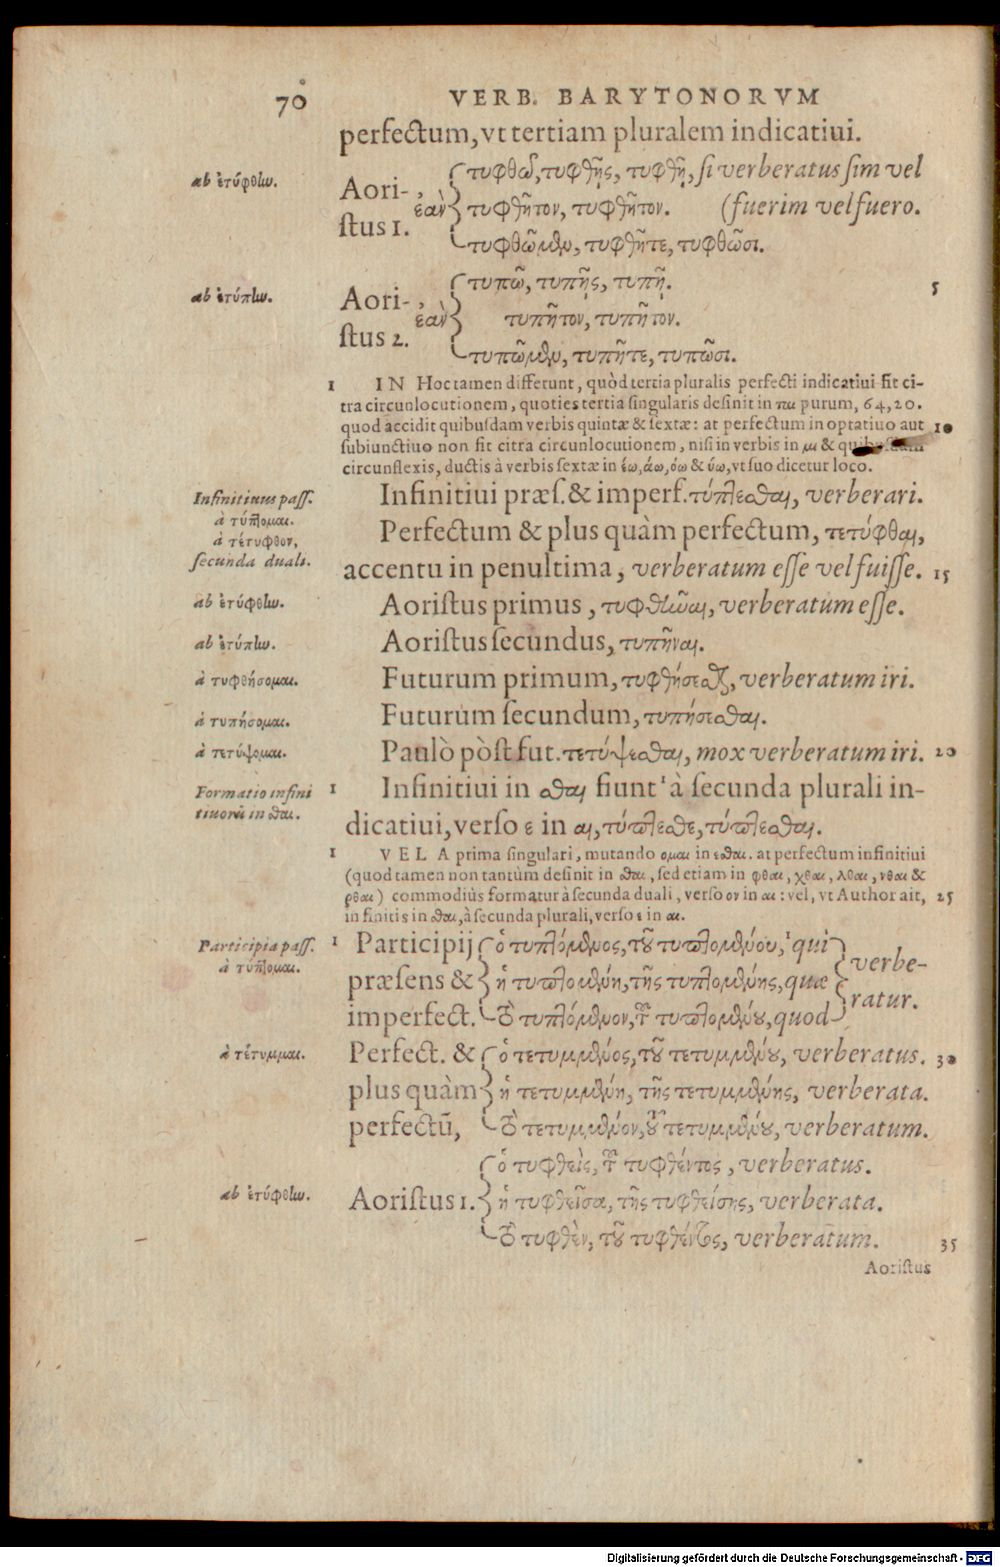 70
VERB. BARYTONORVM
perfectum, vt tertiam pluralem indicatiui.
ab ἐτύφθlω.
Aori-
stus 1.
ἐαν
τυφθῶ, τυφθῇς, τυφθῇ, si verberatus sim vel
τυφθῆτον, τυφθῆτον. (fuerim vel fuero.
τυφθῶμεθυ, τυφθῆτε, τυφθῶσι.
ab ἐτύπlω.
Aori-
stus 2.
ἐαν
τυπῶ, τυπῇς, τυπῇ.
5
τυπῆτον, τυπῆτον.
τυπῶμεθυ, τυπῆτε, τυπῶσι.
1 IN Hoc tamen differunt, quòd tertia pluralis perfecti indicatiui fit ci-
tra circunlocutionem, quoties tertia singularis desinit in παι purum, 64, 20.
quod accidit quibusdam verbis quintæ & sextæ: at perfectum in optatiuo aut 10
subiunctiuo non fit citra circunlocutionem, nisi in verbis in μι & quibusdam
circunflexis, ductis à verbis sextæ in έω, άω, όω & ύω, vt suo dicetur loco.
Infinitiuus pass.
à τύπτομαι.
Infinitiui præs. & imperf. τύπτεσθαι, verberari.
à τέτυφθον,
secunda duali.
Perfectum & plus quàm perfectum, τετύφθαι,
accentu in penultima, verberatum esse vel fuisse. 15
ab ἐτύφθlω.
Aoristus primus, τυφθῆναι, verberatum esse.
ab ἐτύπlω.
Aoristus secundus, τυπῆναι.
à τυφθήσομαι.
Futurum primum, τυφθήσεσθαι, verberatum iri.
à τυπήσομαι.
Futurum secundum, τυπήσεσθαι.
à τετύψομαι.
Paulò pòst fut. τετύψεσθαι, mox verberatum iri. 20
Formatio infini
tiuorū in σθαι.
1 Infinitiui in σθαι fiunt ¹ à secunda plurali in-
dicatiui, verso ε in αι, τύπτεσθε, τύπτεσθαι.
1 VEL A prima singulari, mutando ομαι in εσθαι. at perfectum infinitiui
(quod tamen non tantùm desinit in σθαι, sed etiam in φθαι, χθαι, λθαι, νθαι &
ρθαι) commodiùs formatur à secunda duali, verso ον in αι: vel, vt Author ait, 25
in finitis in σθαι, à secunda plurali, verso ε in αι.
Participia pass.
à τύπτομαι.
1 Participij
præsens &
imperfect.
ὁ τυπτόμενος, τοῦ τυπτομένου, ¹ qui
ἡ τυπτομένη, τῆς τυπτομένης, quæ
τὸ τυπτόμενον, τοῦ τυπτομένου, quod
verbe-
ratur.
à τέτυμμαι.
Perfect. &
plus quàm
perfectū,
ὁ τετυμμένος, τοῦ τετυμμένου, verberatus. 30
ἡ τετυμμένη, τῆς τετυμμένης, verberata.
τὸ τετυμμένον, τοῦ τετυμμένου, verberatum.
ab ἐτύφθlω.
Aoristus 1.
ὁ τυφθεὶς, τοῦ τυφθέντος, verberatus.
ἡ τυφθεῖσα, τῆς τυφθείσης, verberata.
τὸ τυφθὲν, τοῦ τυφθέντος, verberatum. 35
Aoristus
Digitalisierung gefördert durch die Deutsche Forschungsgemeinschaft - DFG